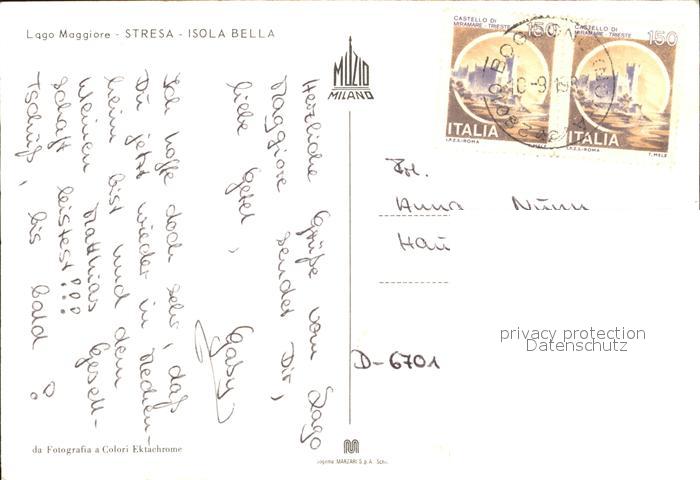 Lago Maggiore - STRESA - ISOLA BELLA
Herzliche Grüße vom Lago
Maggiore sendet Dir,
liebe
Gaby
Ich hoffe doch sehr, daß
Du jetzt wieder in
heim bist und dem
kleinen Matthias Gesell-
schaft leistest!!!
Tschüß, bis bald
da Fotografia a Colori Ektachrome
MUZIO
MILANO
CASTELLO DI
MIRAMARE - TRIESTE
150
ITALIA
I.P.Z.S.-ROMA
CASTELLO DI
MIRAMARE - TRIESTE
150
ITALIA
I.P.Z.S.-ROMA T. MELE
Frl.
Anna Nunn
Hau
D-6701
privacy protection
Datenschutz